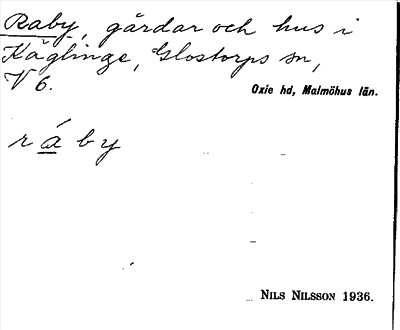 Råby, gårdar och hus i
Käglinge, Glostorps sn,
V 6.
Oxie hd, Malmöhus län.
r á b y
NILS NILSSON 1936.